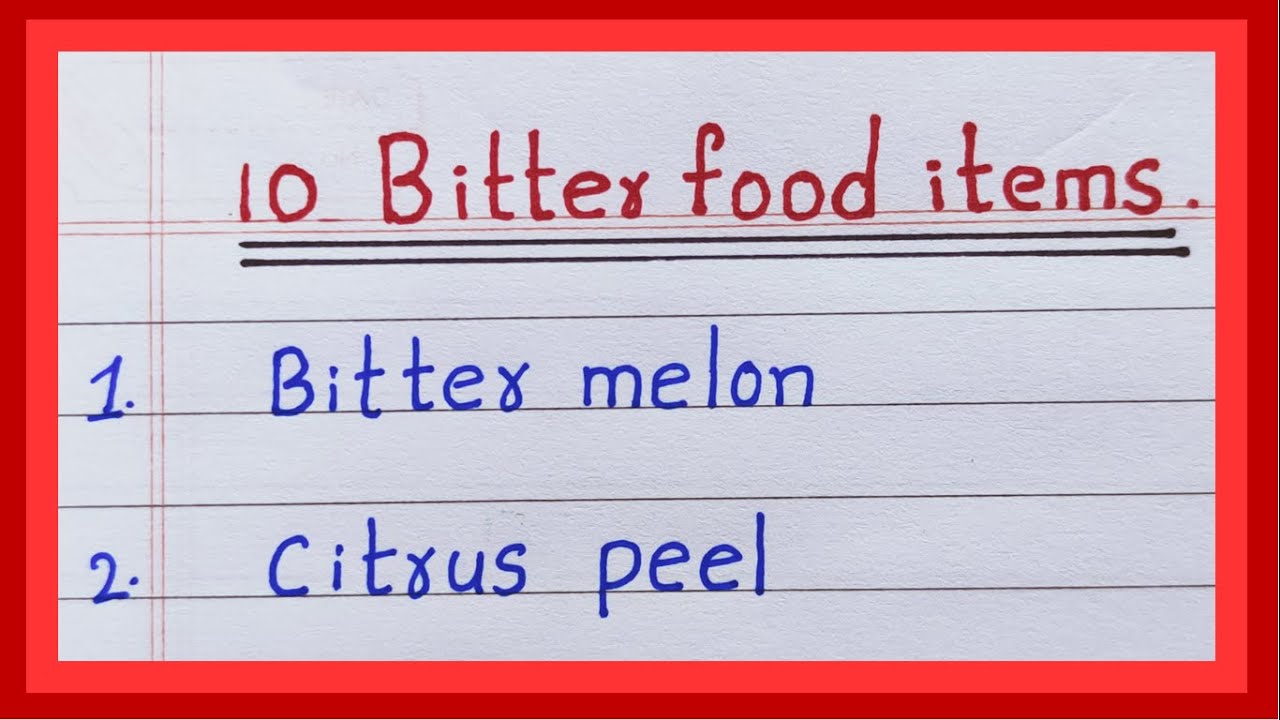 10 Bitter food items.
1. Bitter melon
2. Citrus peel